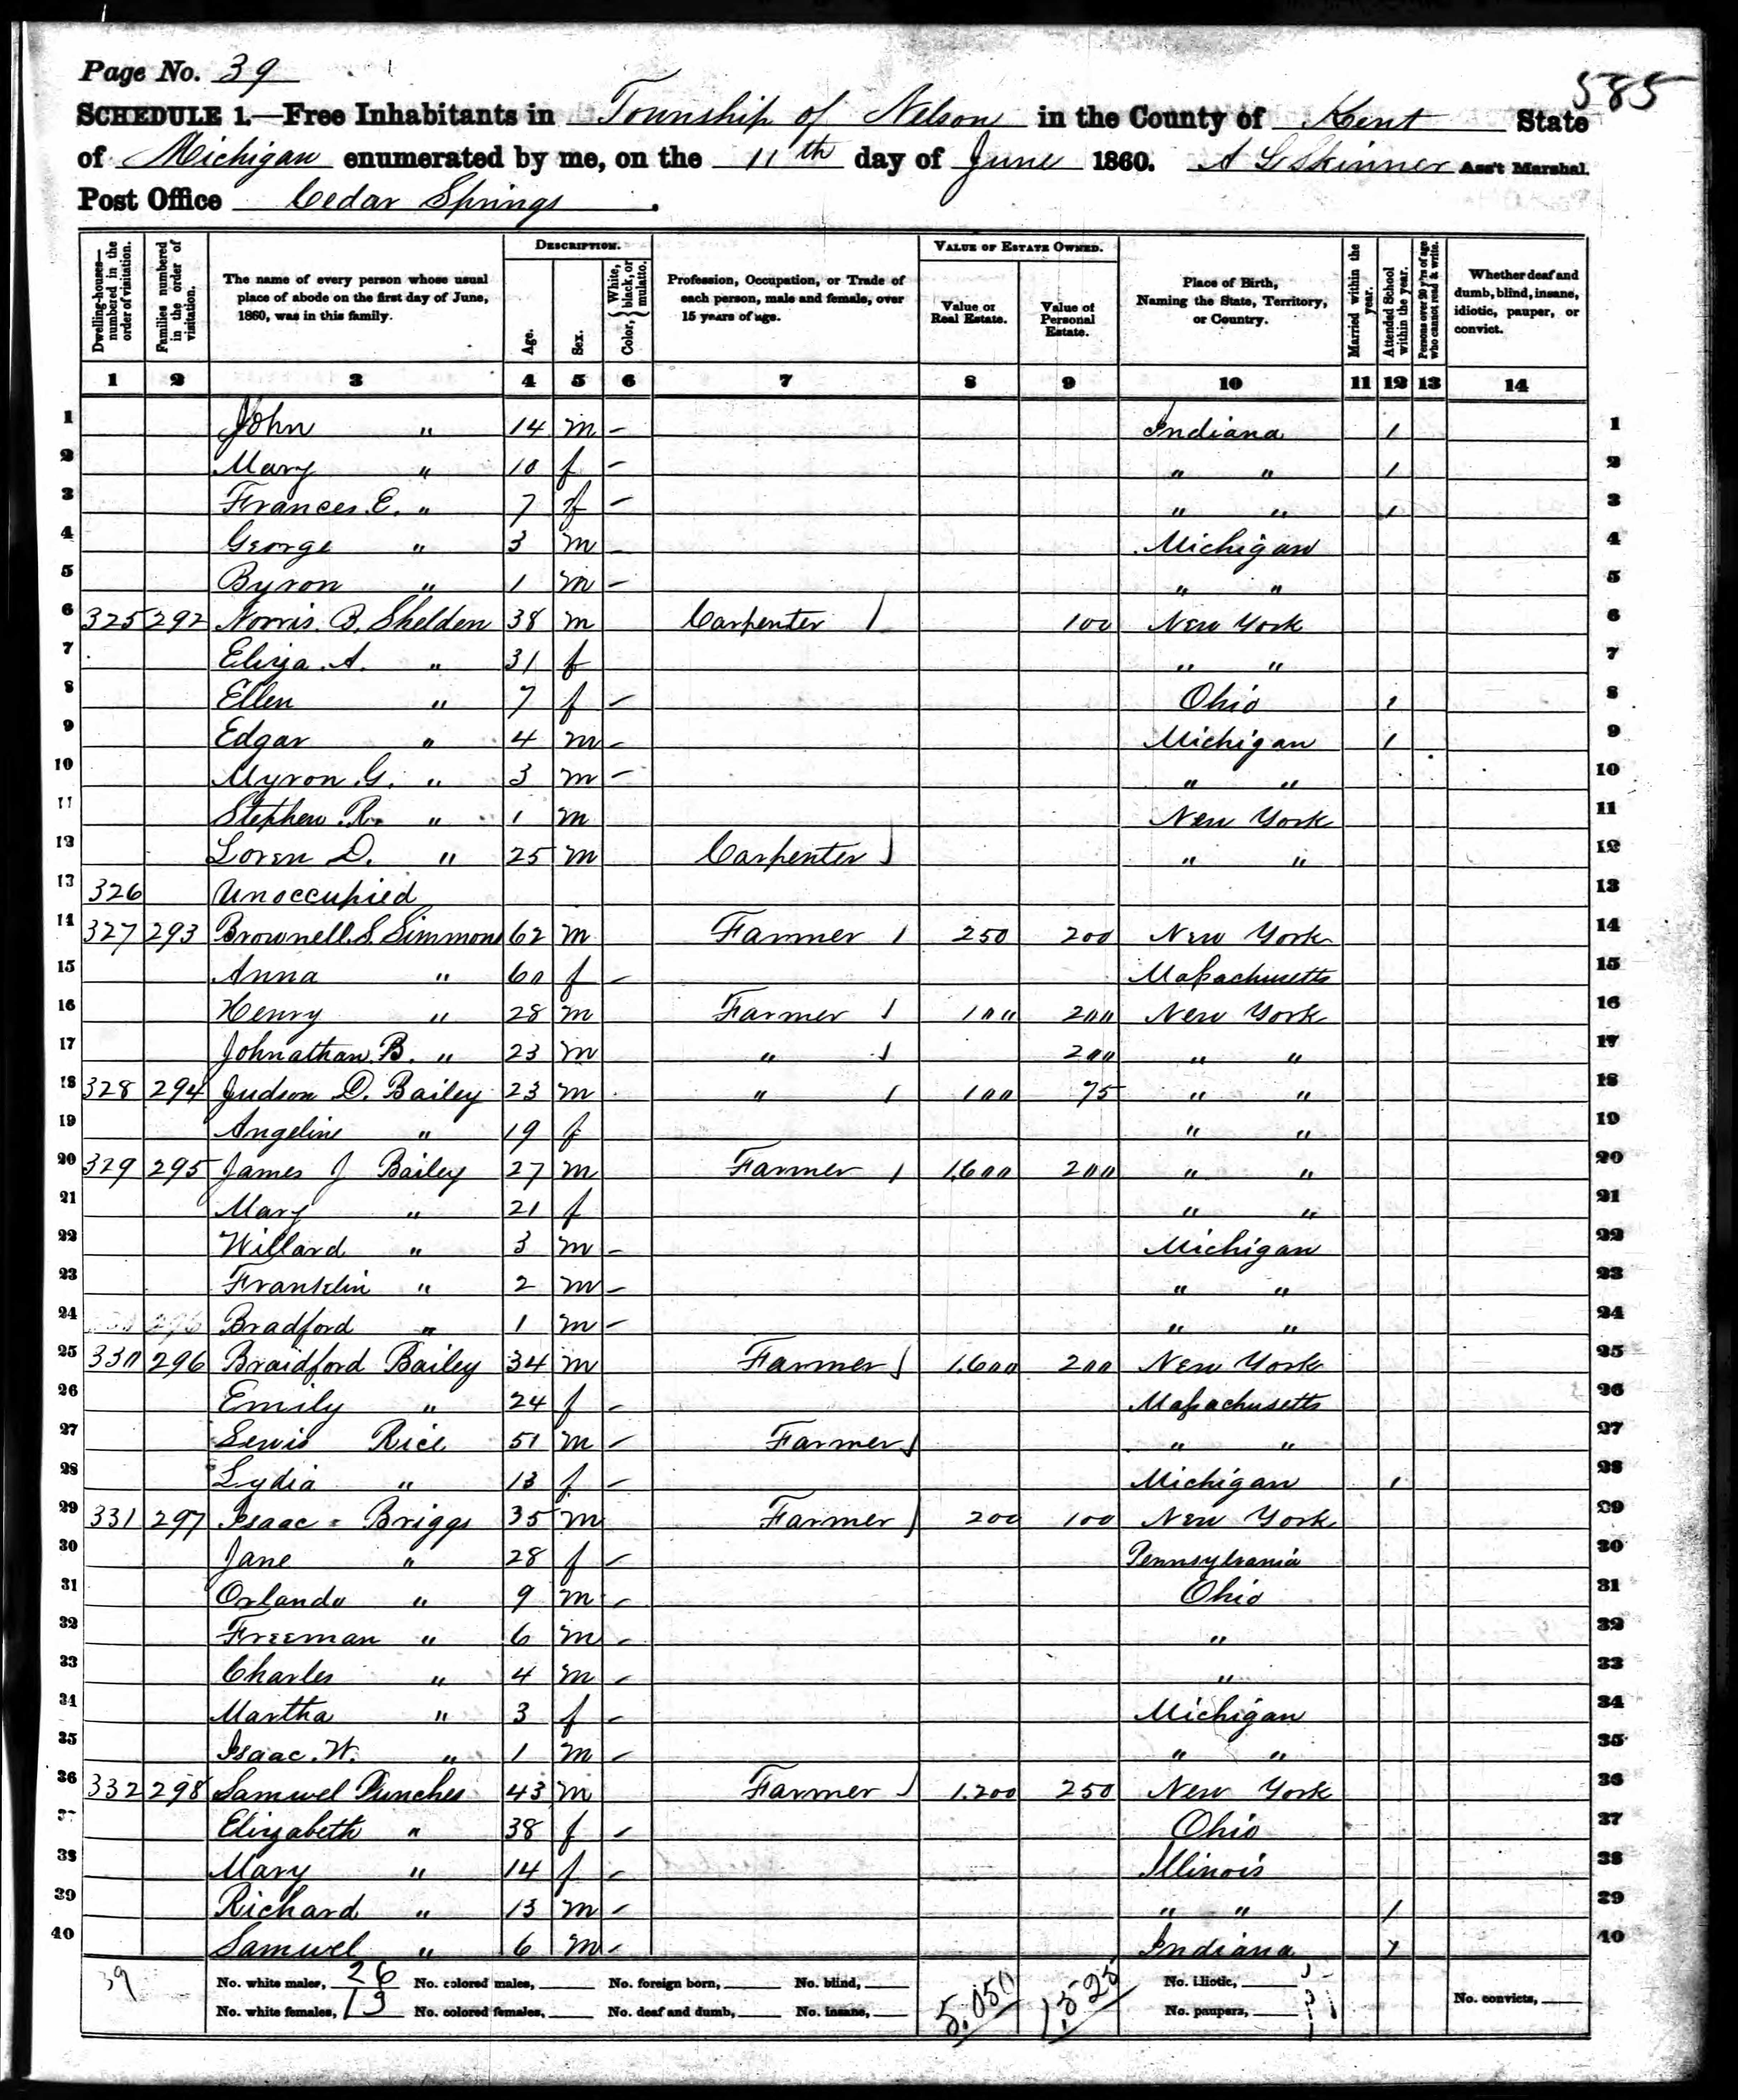 Page No. 39
585
SCHEDULE 1.—Free Inhabitants in Township of Nelson in the County of Kent State
of Michigan enumerated by me, on the 11th day of June 1860. A G Skinner Ass't Marshal.
Post Office Cedar Springs.
Dwelling-houses—numbered in the order of visitation. Families numbered in the order of visitation. The name of every person whose usual place of abode on the first day of June, 1860, was in this family. DESCRIPTION. Age. Sex. Color, { White, black, or mulatto. Profession, Occupation, or Trade of each person, male and female, over 15 years of age. VALUE OF ESTATE OWNED. Value of Real Estate. Value of Personal Estate. Place of Birth, Naming the State, Territory, or Country. Married within the year. Attended School within the year. Persons over 20 y'rs of age who cannot read & write. Whether deaf and dumb, blind, insane, idiotic, pauper, or convict.
1 2 3 4 5 6 7 8 9 10 11 12 13 14
1 John " 14 m - Indiana / 1
2 Mary " 10 f - " " / 2
3 Frances. E. " 7 f - " " / 3
4 George " 3 m - Michigan 4
5 Byron " 1 m - " " 5
6 325 292 Norris. B. Shelden 38 m Carpenter / 100 New York 6
7 Eliza. A. " 31 f " " 7
8 Ellen " 7 f - Ohio / 8
9 Edgar " 4 m - Michigan / 9
10 Myron. G. " 3 m - " " 10
11 Stephen. R. " 1 m New York 11
12 Loren D. " 25 m Carpenter / " " 12
13 326 Unoccupied 13
14 327 293 Brownell. S. Simmons 62 m Farmer / 250 200 New York 14
15 Anna " 60 f - Massachusetts 15
16 Henry " 28 m Farmer / 100 200 New York 16
17 Johnathan. B. " 23 m " / 200 " " 17
18 328 294 Judson D. Bailey 23 m " / 100 75 " " 18
19 Angeline " 19 f " " 19
20 329 295 James J Bailey 27 m Farmer / 1,600 200 " " 20
21 Mary " 21 f " " 21
22 Willard " 3 m - Michigan 22
23 Franklin " 2 m - " " 23
24 Bradford " 1 m - " " 24
25 330 296 Braidford Bailey 34 m Farmer / 1,600 200 New York 25
26 Emily " 24 f - Massachusetts 26
27 Lewis Rice 51 m - Farmer / " " 27
28 Lydia " 13 f - Michigan / 28
29 331 297 Isaac Briggs 35 m Farmer / 200 100 New York 29
30 Jane " 28 f - Pennsylvania 30
31 Orlando " 9 m - Ohio 31
32 Freeman " 6 m - " 32
33 Charles " 4 m - " 33
34 Martha " 3 f - Michigan 34
35 Isaac. W. " 1 m - " " 35
36 332 298 Samuel Punches 43 m Farmer / 1.200 250 New York 36
37 Elizabeth " 38 f - Ohio 37
38 Mary " 14 f - Illinois 38
39 Richard " 13 m - " " / 39
40 Samuel " 6 m - Indiana / 40
39 No. white males, 26 No. colored males, No. foreign born, No. blind, 5,050 1,525 No. idiotic,
No. white females, 13 No. colored females, No. deaf and dumb, No. insane, No. paupers, No. convicts,